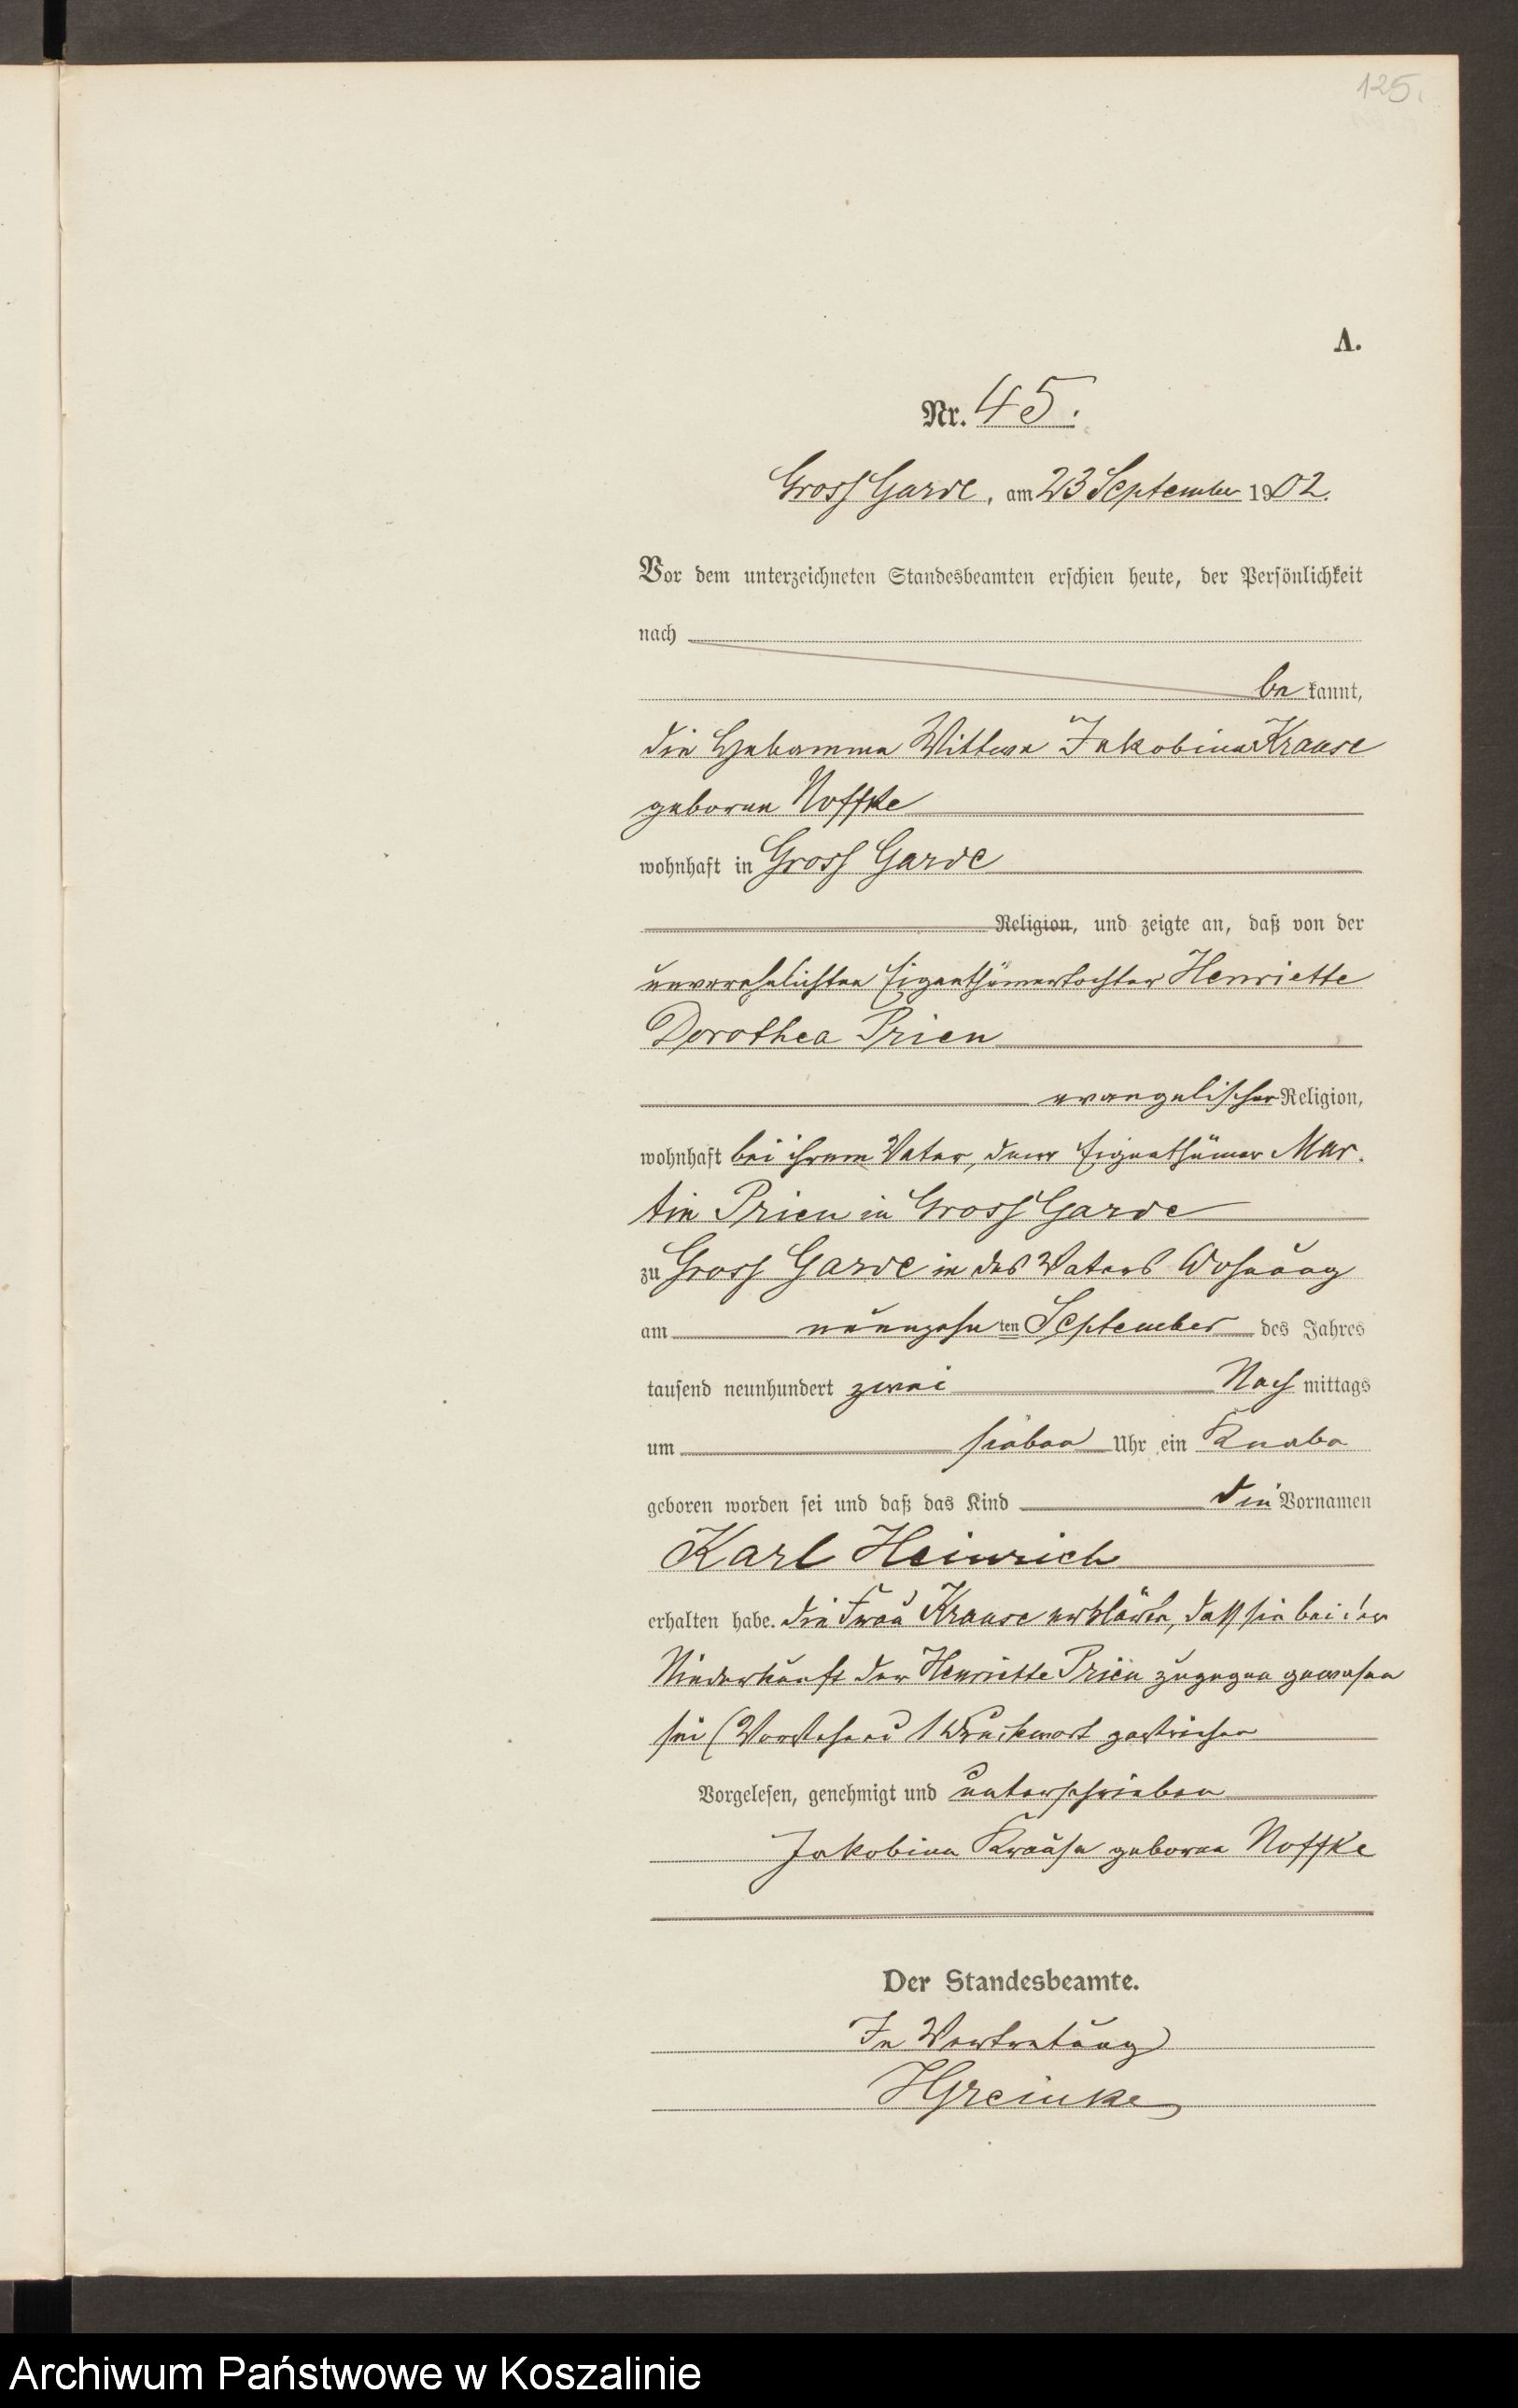 125.
A.
Nr. 45.
Gross Garde, am 23 September 1902.
Vor dem unterzeichneten Standesbeamten erschien heute, der Persönlichkeit
nach
be kannt,
die Hebamme Wittwe Jakobine Krause
geborene Noffke
wohnhaft in Gross Garde
Religion, und zeigte an, daß von der
unverehelichten Eigenthümertochter Henriette
Dorothea Prien
evangelischer Religion,
wohnhaft bei ihrem Vater, dem Eigenthümer Mar-
tin Prien in Gross Garde
zu Gross Garde in des Vaters Wohnung
am neunzehnten September des Jahres
tausend neunhundert zwei Nach mittags
um sieben Uhr ein Knabe
geboren worden sei und daß das Kind die Vornamen
Karl Heinrich
erhalten habe. Die Frau Krause erklärte, daß sie bei der
Niederkunft der Henriette Prien zugegen gewesen
sei (Vorstehend 1 Druckwort gestrichen
Vorgelesen, genehmigt und unterschrieben
Jakobine Krause geborene Noffke
Der Standesbeamte.
In Vertretung
HGreinke
Archiwum Państwowe w Koszalinie